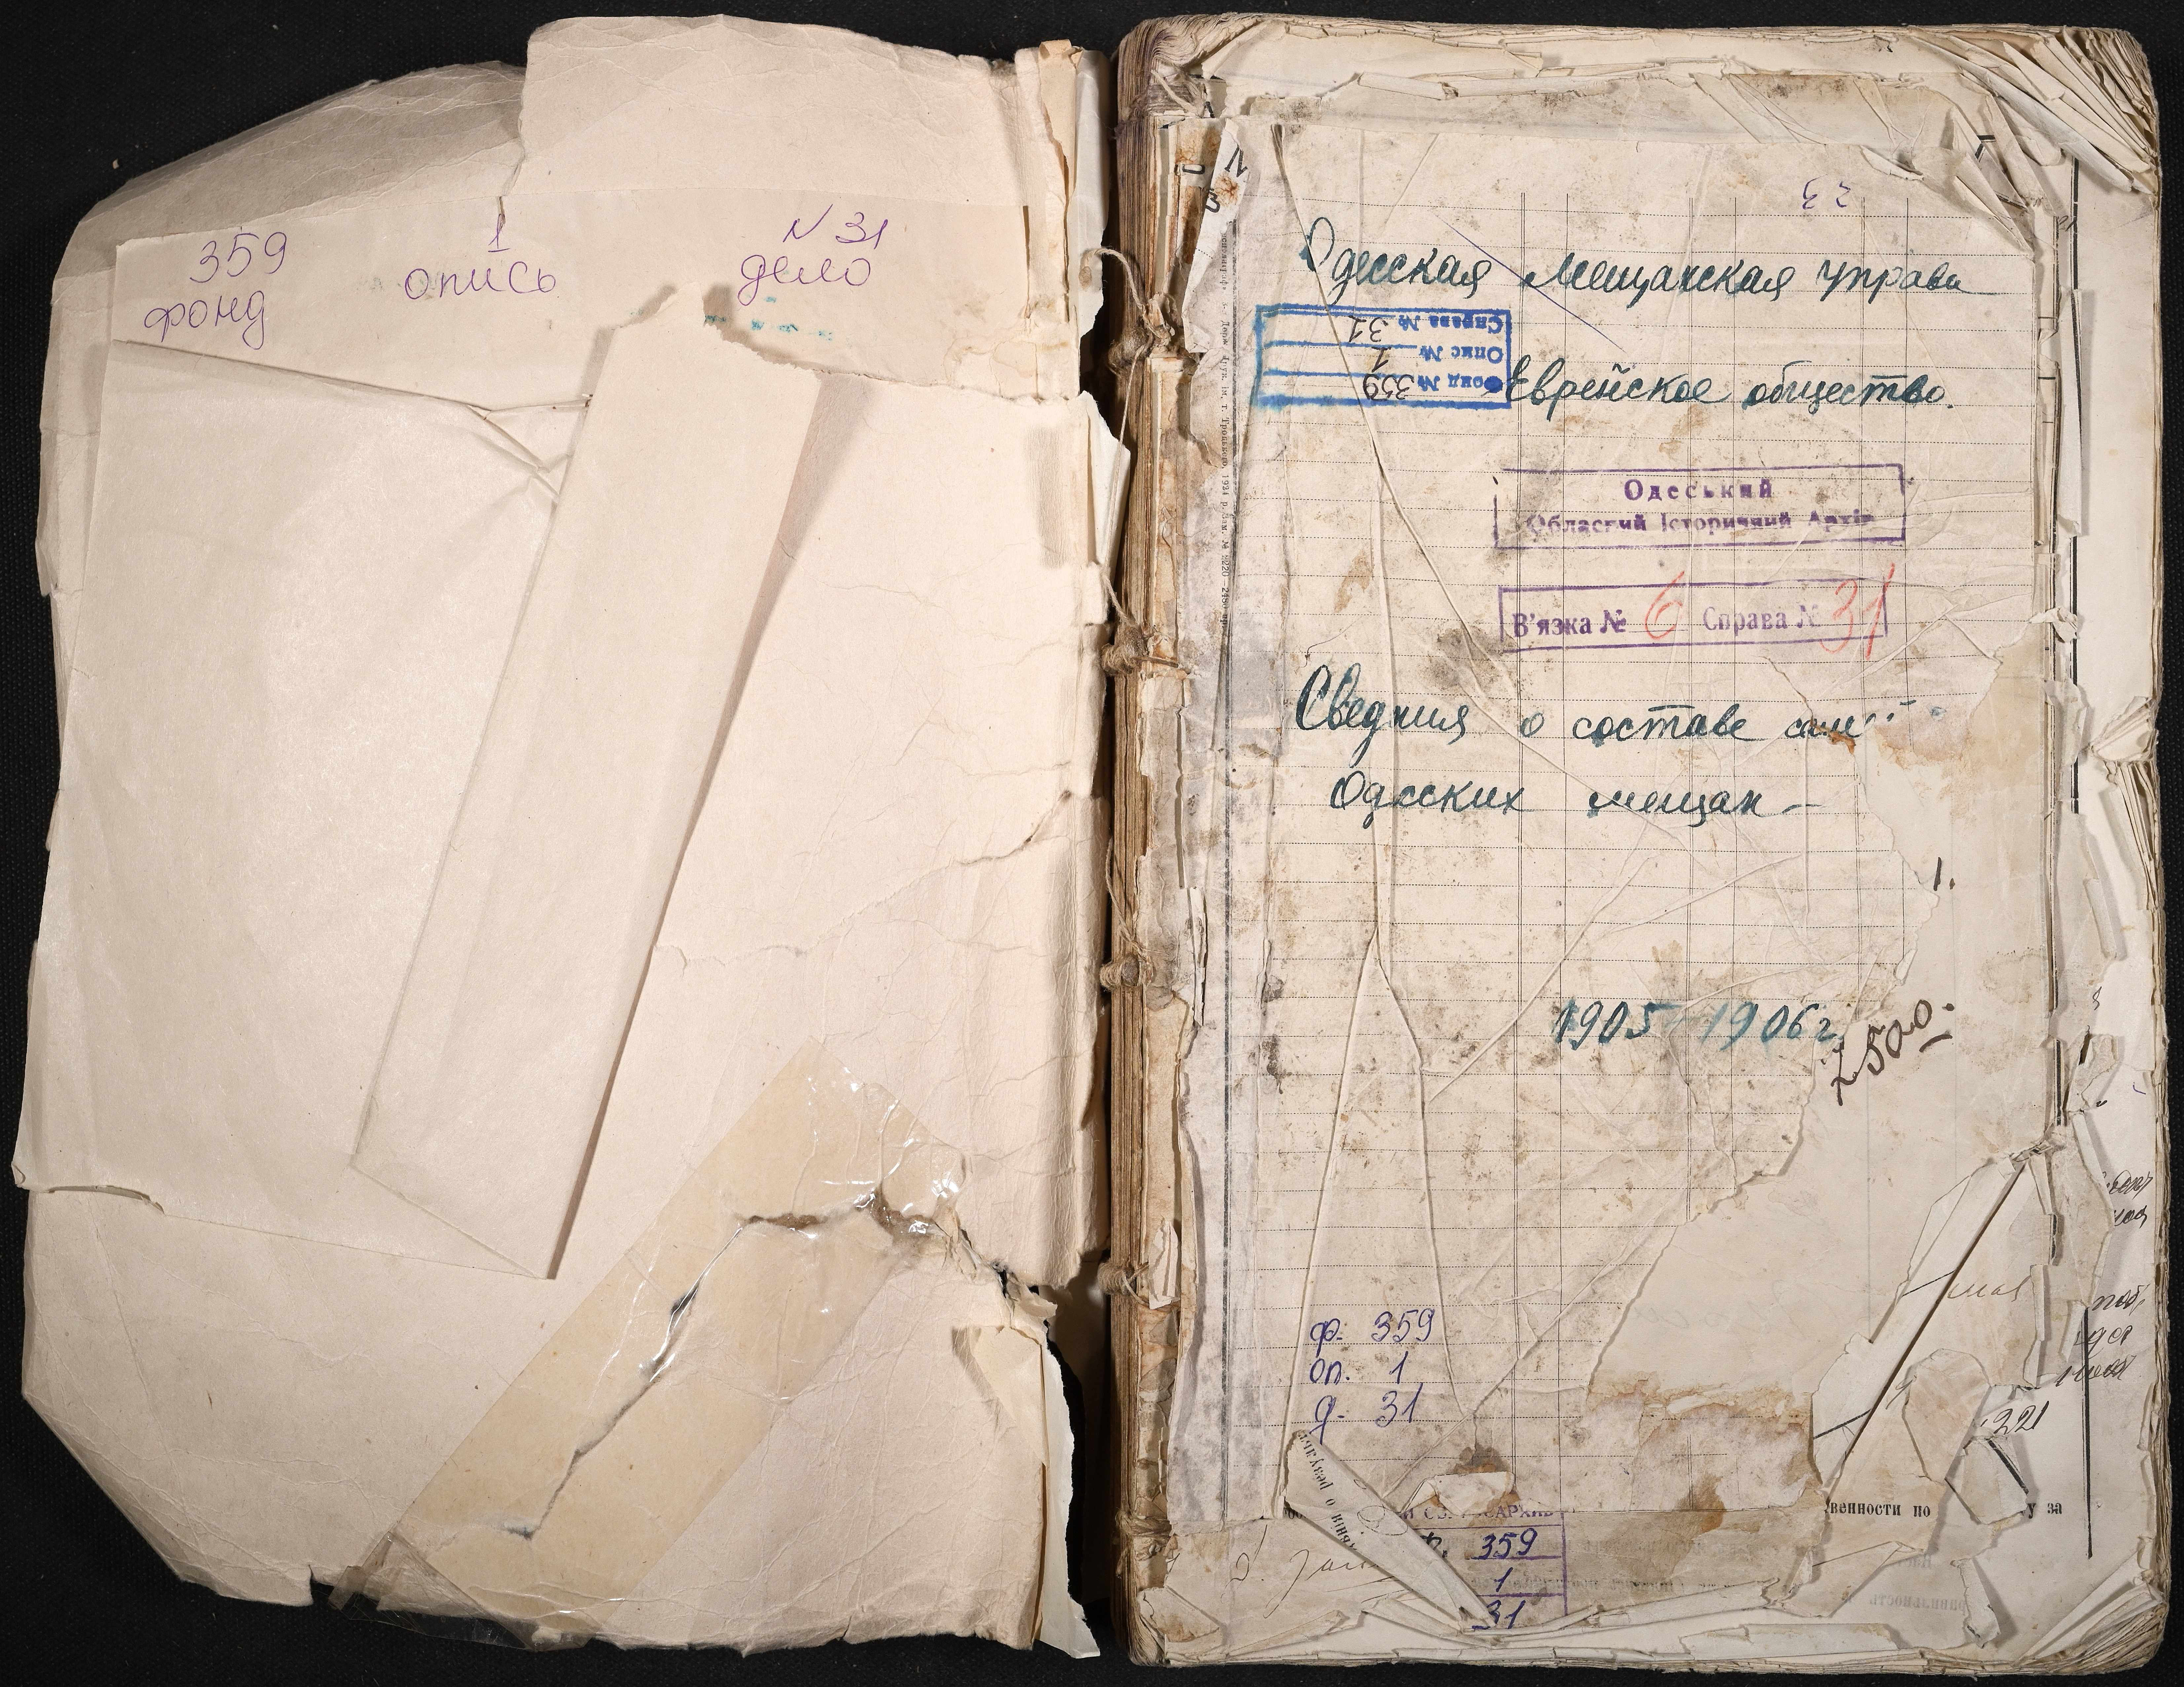 359
фонд
1
опись
N 31
дело
Одесская Мещанская Управа
Справа № 31
Опис № 1
Фонд № 359
Еврейское общество.
Одеський
Обласний Історичний Архів
В'язка № 6 Справа № 31
Сведния о составе
Одесских мещан
1.
1905 1906 г
2500.
ф. 359
оп. 1
д. 31
221
венности по
у за
359
1
31